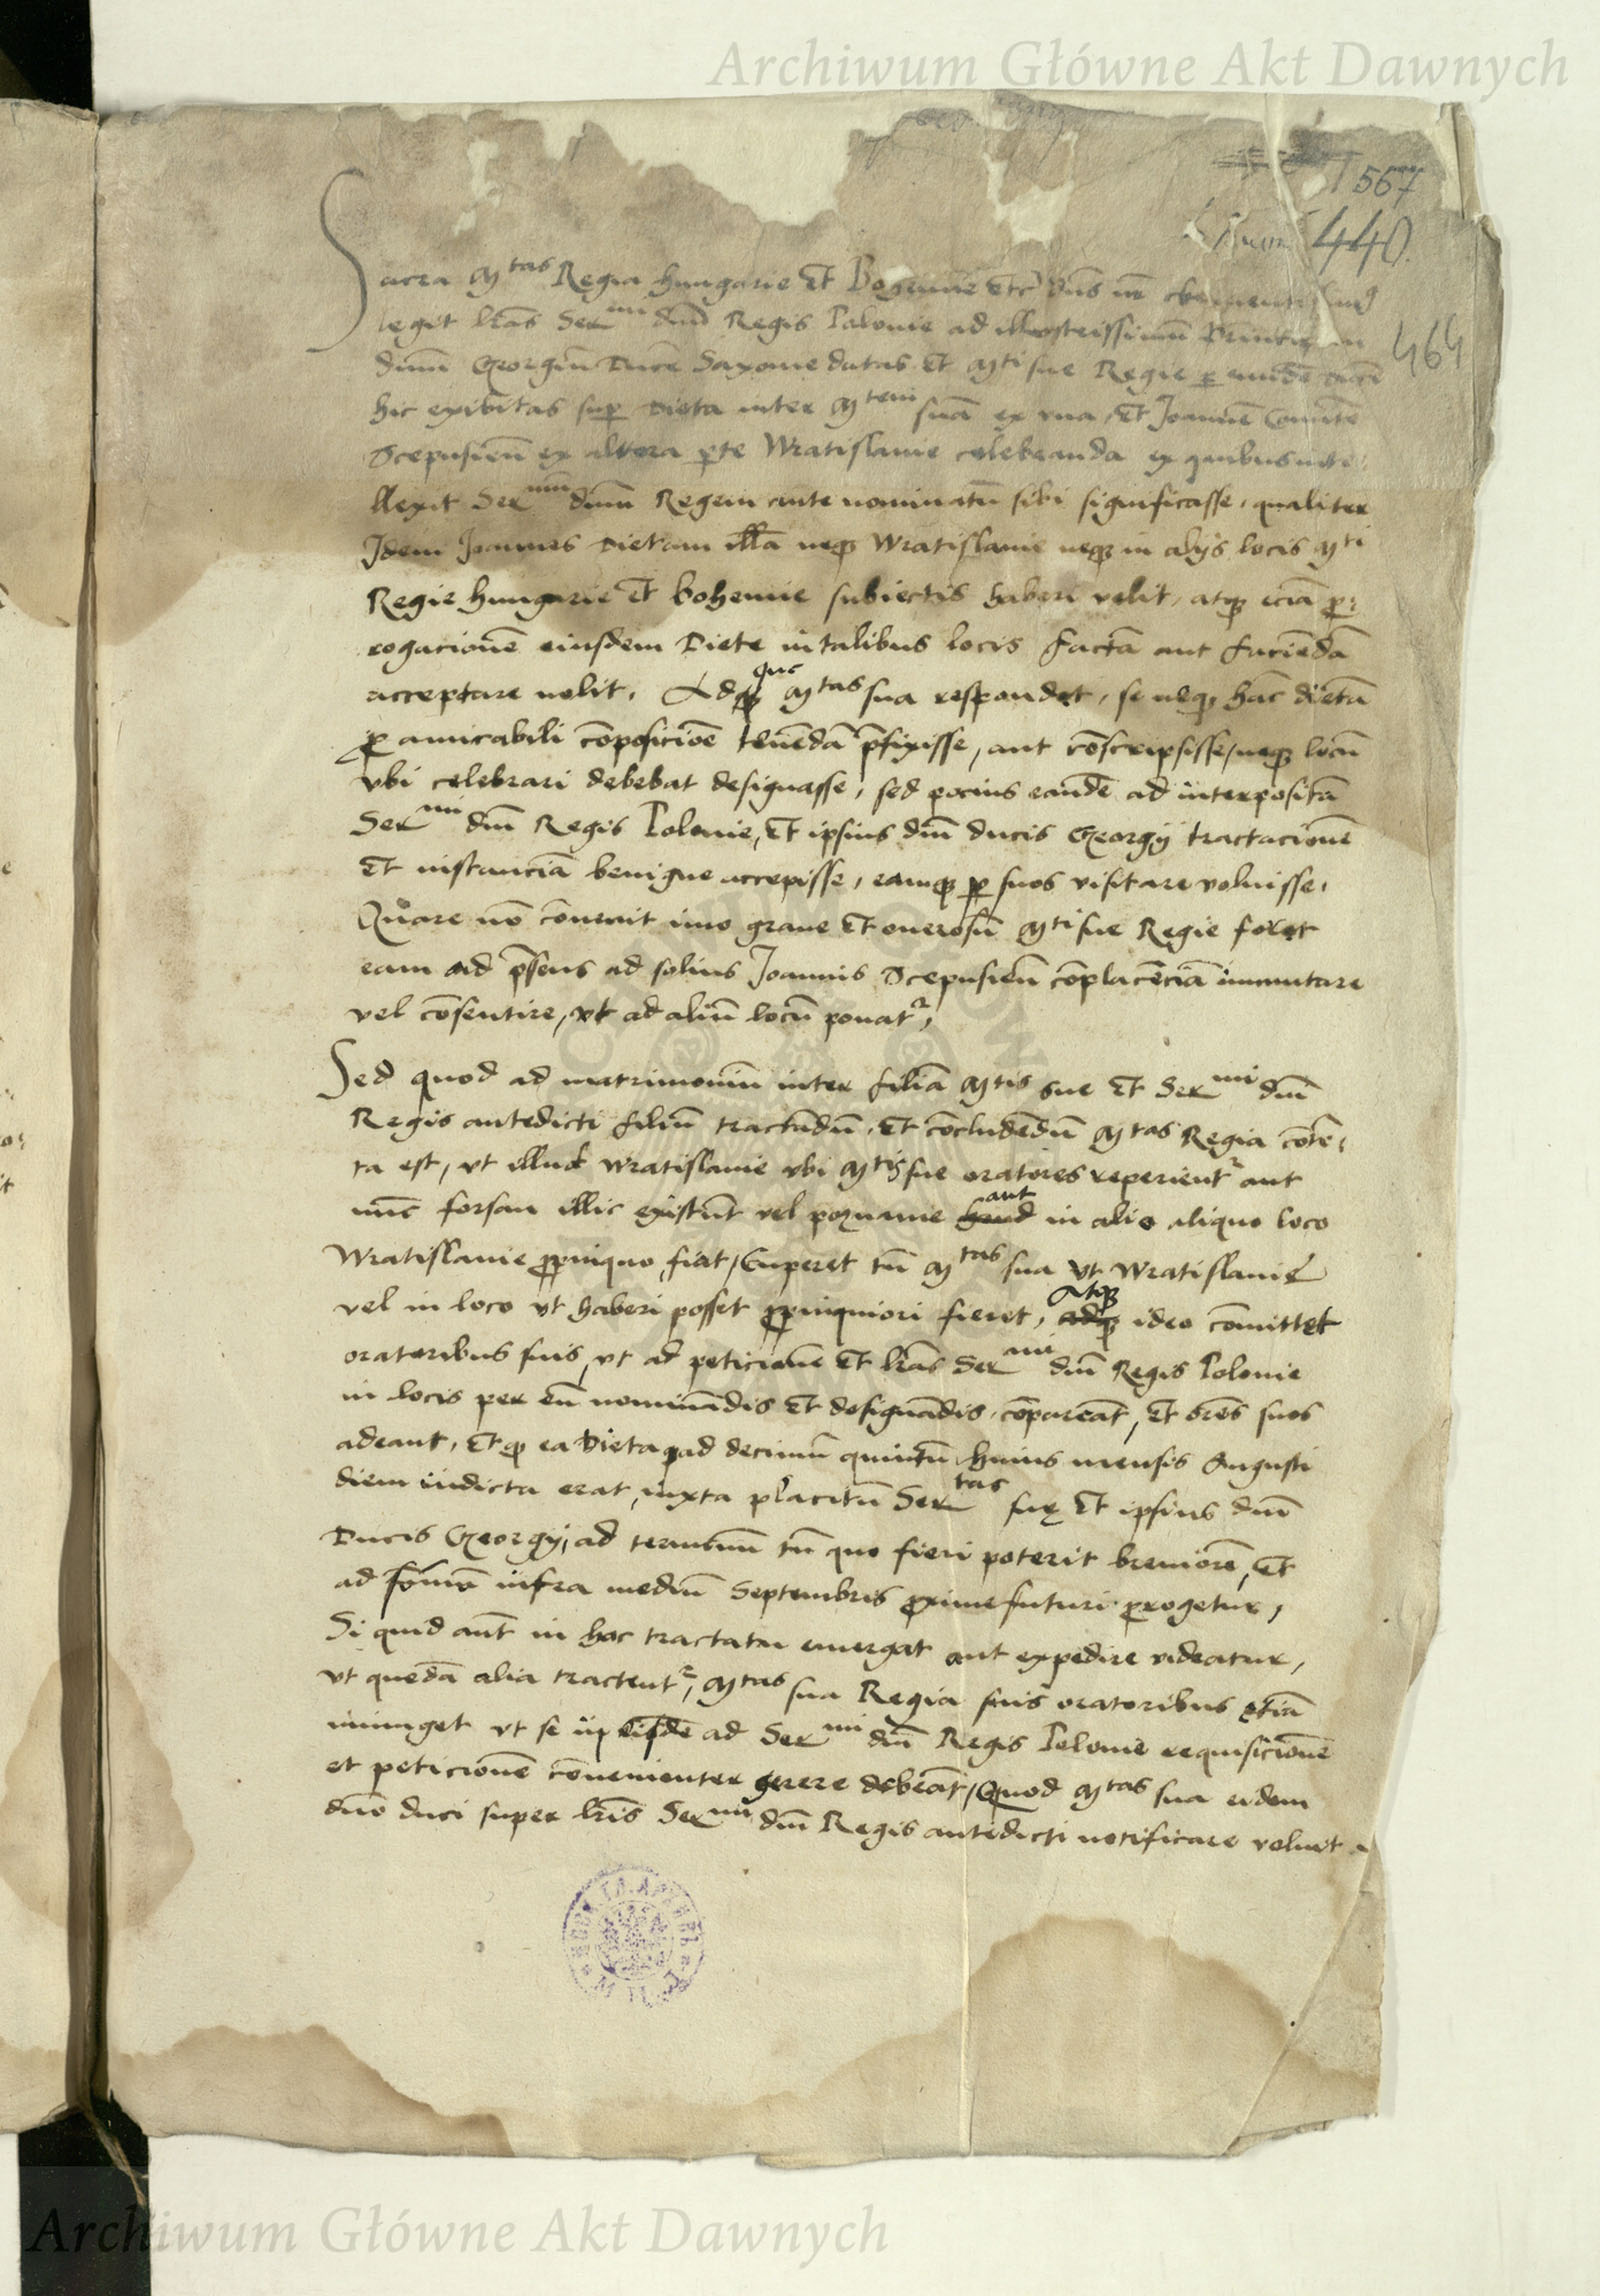 Archiwum Główne Akt Dawnych
567
440.
464
Sacra Mtas Regia Hungarie Et Bohemie etc Dns nr clementissimus
legit lras Sermi dni Regis Polonie ad illustrissimum Principem
dnum Georgiu Duce Saxonie datas Et Mti sue Regie p eunde ducem
hic exibitas sup Dieta inter Mtem sua ex vna, Et Joanne Comite
Scepusien ex altera pte Wratislauie celebranda ex quibus inte,
llexit Sermum dnum Regem ante nominatu sibi significasse, qualiter
Idem Joannes Dietam illa neq Wratislauie neq in alijs locis Mti
Regie Hungarie Et bohemie subiectis haberi velit, atq ecia p,
rogacione eiusdem Diete in talibus locis facta aut facienda
acceptare nolit, Ad que Mtas sua respondet, se neq hac dieta
p amicabili composicioe tenenda pfixisse, aut conscripsisse, neq locu
vbi celebrari debebat designasse, sed pocius eande ad interposita
Sermi dni Regis Polonie, Et ipsius dni ducis Georgij tractacione
Et instancia benigne accepisse, eamq p suos visitare voluisse,
Quare no conuenit imo graue Et onerosu Mti sue Regie foret
eam ad psens ad solius Joannis Scepusien coplacencia immutare
vel cosentire, vt ad aliu locu ponat,
Sed quod ad matrimoniu inter filia Mtis sue Et Sermi dni
Regis antedicti filiu tractandu, Et concludendu Mtas Regia conte,
ta est, vt illud Wratislauie vbi Mtis sue oratores reperient aut
nuc forsan illic existunt vel poznanie aut in alio aliquo loco
Wratislauie ppinquo fiat, Cuperet tn Mtas sua vt Wratislauie
vel in loco vt haberi posset ppinquiori fieret, Atq ideo comittet
oratoribus suis, vt ad peticione Et lras Sermi dni Regis Polonie
in locis per eu nominandis Et designandis, compareat, Et ores suos
adeant, Et q ea Dieta ad decimu quintu huius mensis Augusti
diem indicta erat, iuxta placitu Sertas sue Et ipsius dni
Ducis Georgij, ad terminu tn quo fieri poterit breuiore, Et
ad sumu infra mediu Septembris proxime futuri prorogetur,
Si quid aut in hoc tractatu emergat aut expedire videatur,
vt queda alia tractent, Mtas sua Regia suis oratoribus etia
iniunget vt se in eisde ad Sermi dni Regis Polonie requisicione
et peticione conuenienter gerere debeat, Quod Mtas sua eidem
dno duci super lris Sermi dni Regis antedicti notificare voluit
Archiwum Główne Akt Dawnych